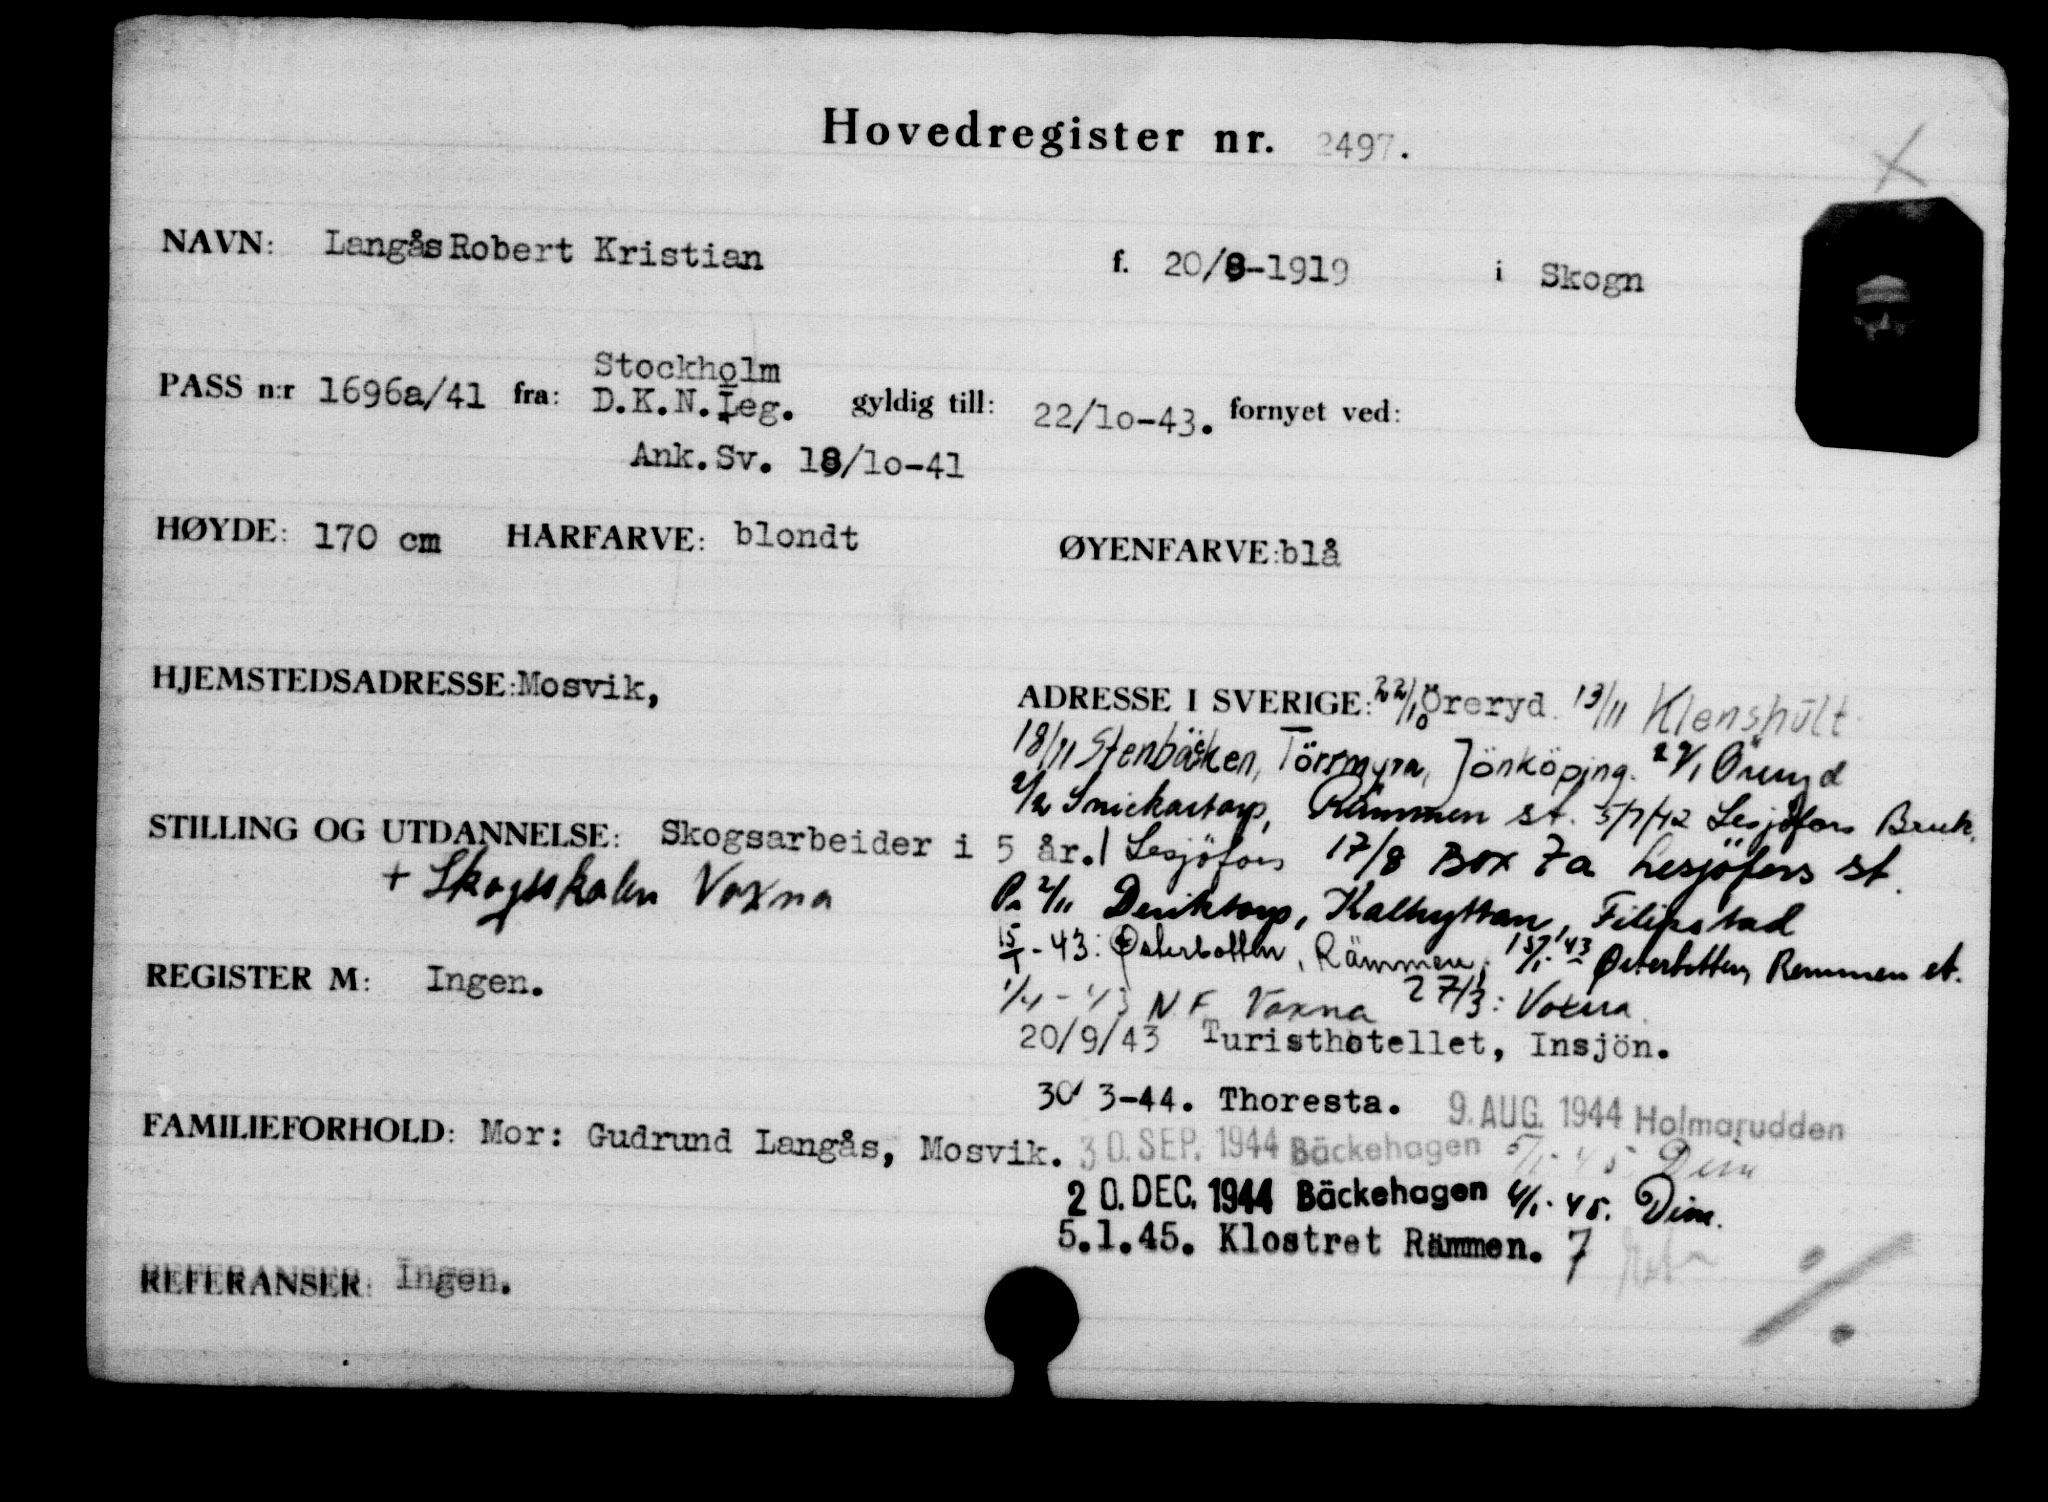 Hovedregister nr. 2497.
NAVN: Langås Robert Kristian f. 20/8-1919 i Skogn
Stockholm
PASS n:r 1696a/41 fra: D.K.N.Leg. gyldig till: 22/lo-43. fornyet ved:
Ank.Sv. 18/lo-41
HØYDE: 170 cm HARFARVE: blondt ØYENFARVE: blå
HJEMSTEDSADRESSE: Mosvik,
ADRESSE I SVERIGE: 22/10 Öreryd. 13/11 Klenshult
18/11 Stenbäcken, Törrmyra, Jönköping. Öreryd
2/2 Snickartorp, Rämmen st. 5/7/42 Lesjöfors Bruk,
STILLING OG UTDANNELSE: Skogsarbeider i 5 år.
Lesjöfors 17/8 Box 7a Lesjöfors st.
+ Skogsskolen Voxna
2/11 Deriktorp, Kalhyttan, Filipstad
15/1-43: Østerbotten, Rämmen, 15/1-43 Østerbotten, Remmen st.
REGISTER M: Ingen.
1/4-43 N F Voxna 27/3: Voxna.
20/9/43 Turisthotellet, Insjön.
30/3-44. Thoresta. 9. AUG. 1944 Holmarudden
FAMILIEFORHOLD: Mor: Gudrund Langås, Mosvik.
30. SEP. 1944 Bäckehagen 5/1-45 Dim
20. DEC. 1944 Bäckehagen 4/1-45. Dim.
5.1.45. Klostret Rämmen. 7
REFERANSER: Ingen.